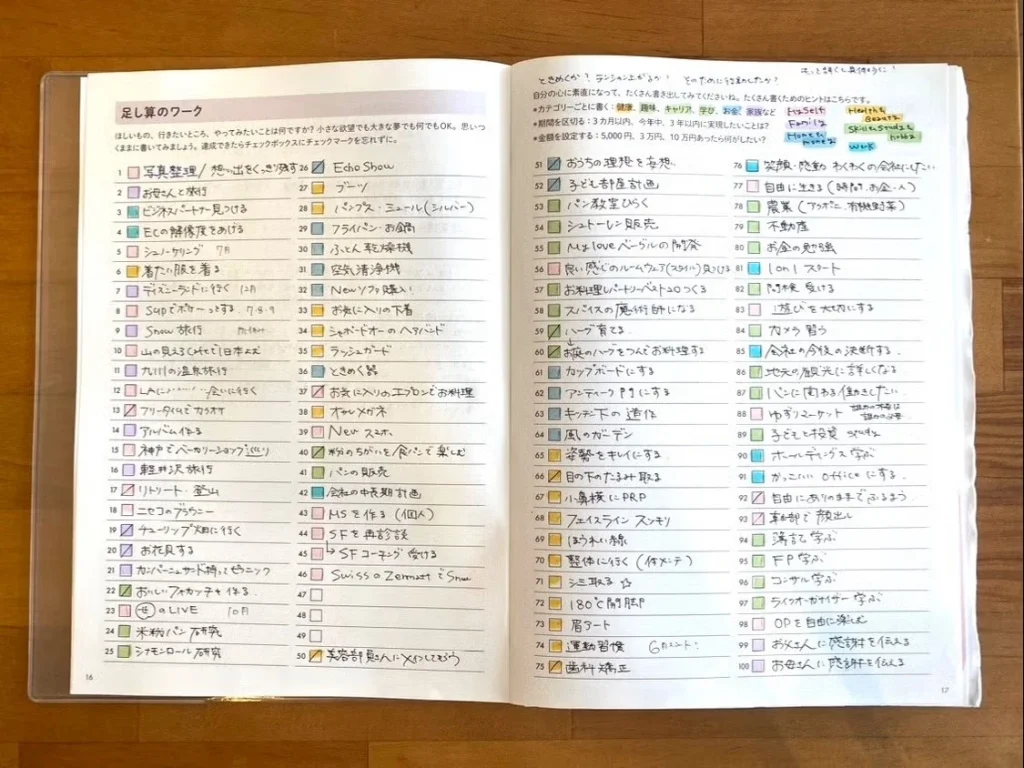 足し算のワーク
ほしいもの、行きたいところ、やってみたいことは何ですか? 小さな欲望でも大きな夢でも何でもOK。思いつ
くままに書いてみましょう。達成できたらチェックボックスにチェックマークを忘れずに。
1 写真整理/想い出をくっきり残す
2 お母さんと旅行
3 ビジネスパートナー見つける
4 ECの解像度をあげる
5 シュノーケリング 7月
6 着たい服を着る
7 ディズニーランドに行く 12月
8 SUPでボケーっとする 7.8.9
9 Snow旅行
10 山の見えるCafeで1日本よむ
11 九州の温泉旅行
12 LAに 会いに行く
13 フリータイムでカラオケ
14 アルバム作る
15 神戸でベーカリーショップ巡り
16 軽井沢旅行
17 リトリート・登山
18 ニセコのブラウニー
19 チューリップ畑に行く
20 お花見する
21 カンパーニュサンド持ってピクニック
22 おいしいフォカッチャ作る
23 のLIVE 10月
24 米粉パン研究
25 シナモンロール研究
16
26 Echo Show
27 ブーツ
28 パンプス・ミュール(シルバー)
29 フライパン・お鍋
30 ふとん乾燥機
31 空気清浄機
32 Newソファ購入!
33 お気に入りの下着
34 シャボードオーのヘアバンド
35 ラッシュガード
36 ときめく器
37 お気に入りのエプロンでお料理
38 オシャレメガネ
39 New スマホ
40 粉のちがいを食パンで楽しむ
41 パンの販売
42 会社の中長期計画
43 MSを作る(個人)
44 SFを再診談
45 SFコーチング受ける
46 SwissのZermattでSnow
47
48
49
50 美容部員さんにメイクしてもらう
ときめくか? テンション上がるか! そのために行動したか?
もっと詳しく具体的に!
自分の心に素直になって、たくさん書き出してみてくださいね。たくさん書くためのヒントはこちらです。
*カテゴリーごとに書く:健康、趣味、キャリア、学び、お金、家族など
*期間を区切る:3カ月以内、今年中、3年以内に実現したいことは?
*金額を設定する:5,000円、3万円、10万円あったら何がしたい?
Myself
Family
Home & money
Health & Beauty
Skill & Study & hobby
Work
51 おうちの理想を妄想
52 子ども部屋計画
53 パン教室ひらく
54 シュトーレン販売
55 My loveベーグルの開発
56 良い感じのルームウェア(スタイル)見つける
57 お料理レパートリーベスト20つくる
58 スパイスの魔術師になる
59 ハーブ育てる
60 お庭のハーブをつんでお料理する
61 カップボードにする
62 アンティーク門にする
63 キッチン下の造作
64 風のガーデン
65 姿勢をキレイにする
66 目の下のたるみ取る
67 小鼻横にPRP
68 フェイスラインスッキリ
69 ほうれい線
70 整体に行く(体メンテ)
71 シミ取る ☆
72 180℃開脚
73 眉アート
74 運動習慣
75 歯科矯正
76 笑顔・感動 わくわくの会社にしたい
77 自由に生きる(時間・お金・人)
78 農業(アクアポニ、有機野菜)
79 不動産
80 お金の勉強
81 1on1 スタート
82 受ける
83 遊びを大切にする
84 カメラ習う
85 会社の今後の決断する
86 地元の観光に詳しくなる
87 パンに関わる働きしたい
88 ゆずりマーケット
89 子どもと投資
90 ホールディングス学ぶ
91 かっこいいOfficeにする
92 自由にありのままでふるまう
93 幹部で顔出し
94 簿記学ぶ
95 FP学ぶ
96 コンサル学ぶ
97 ライフオーガナイザー学ぶ
98 OPを自由に楽しむ
99 お父さんに感謝を伝える
100 お母さんに感謝を伝える
17